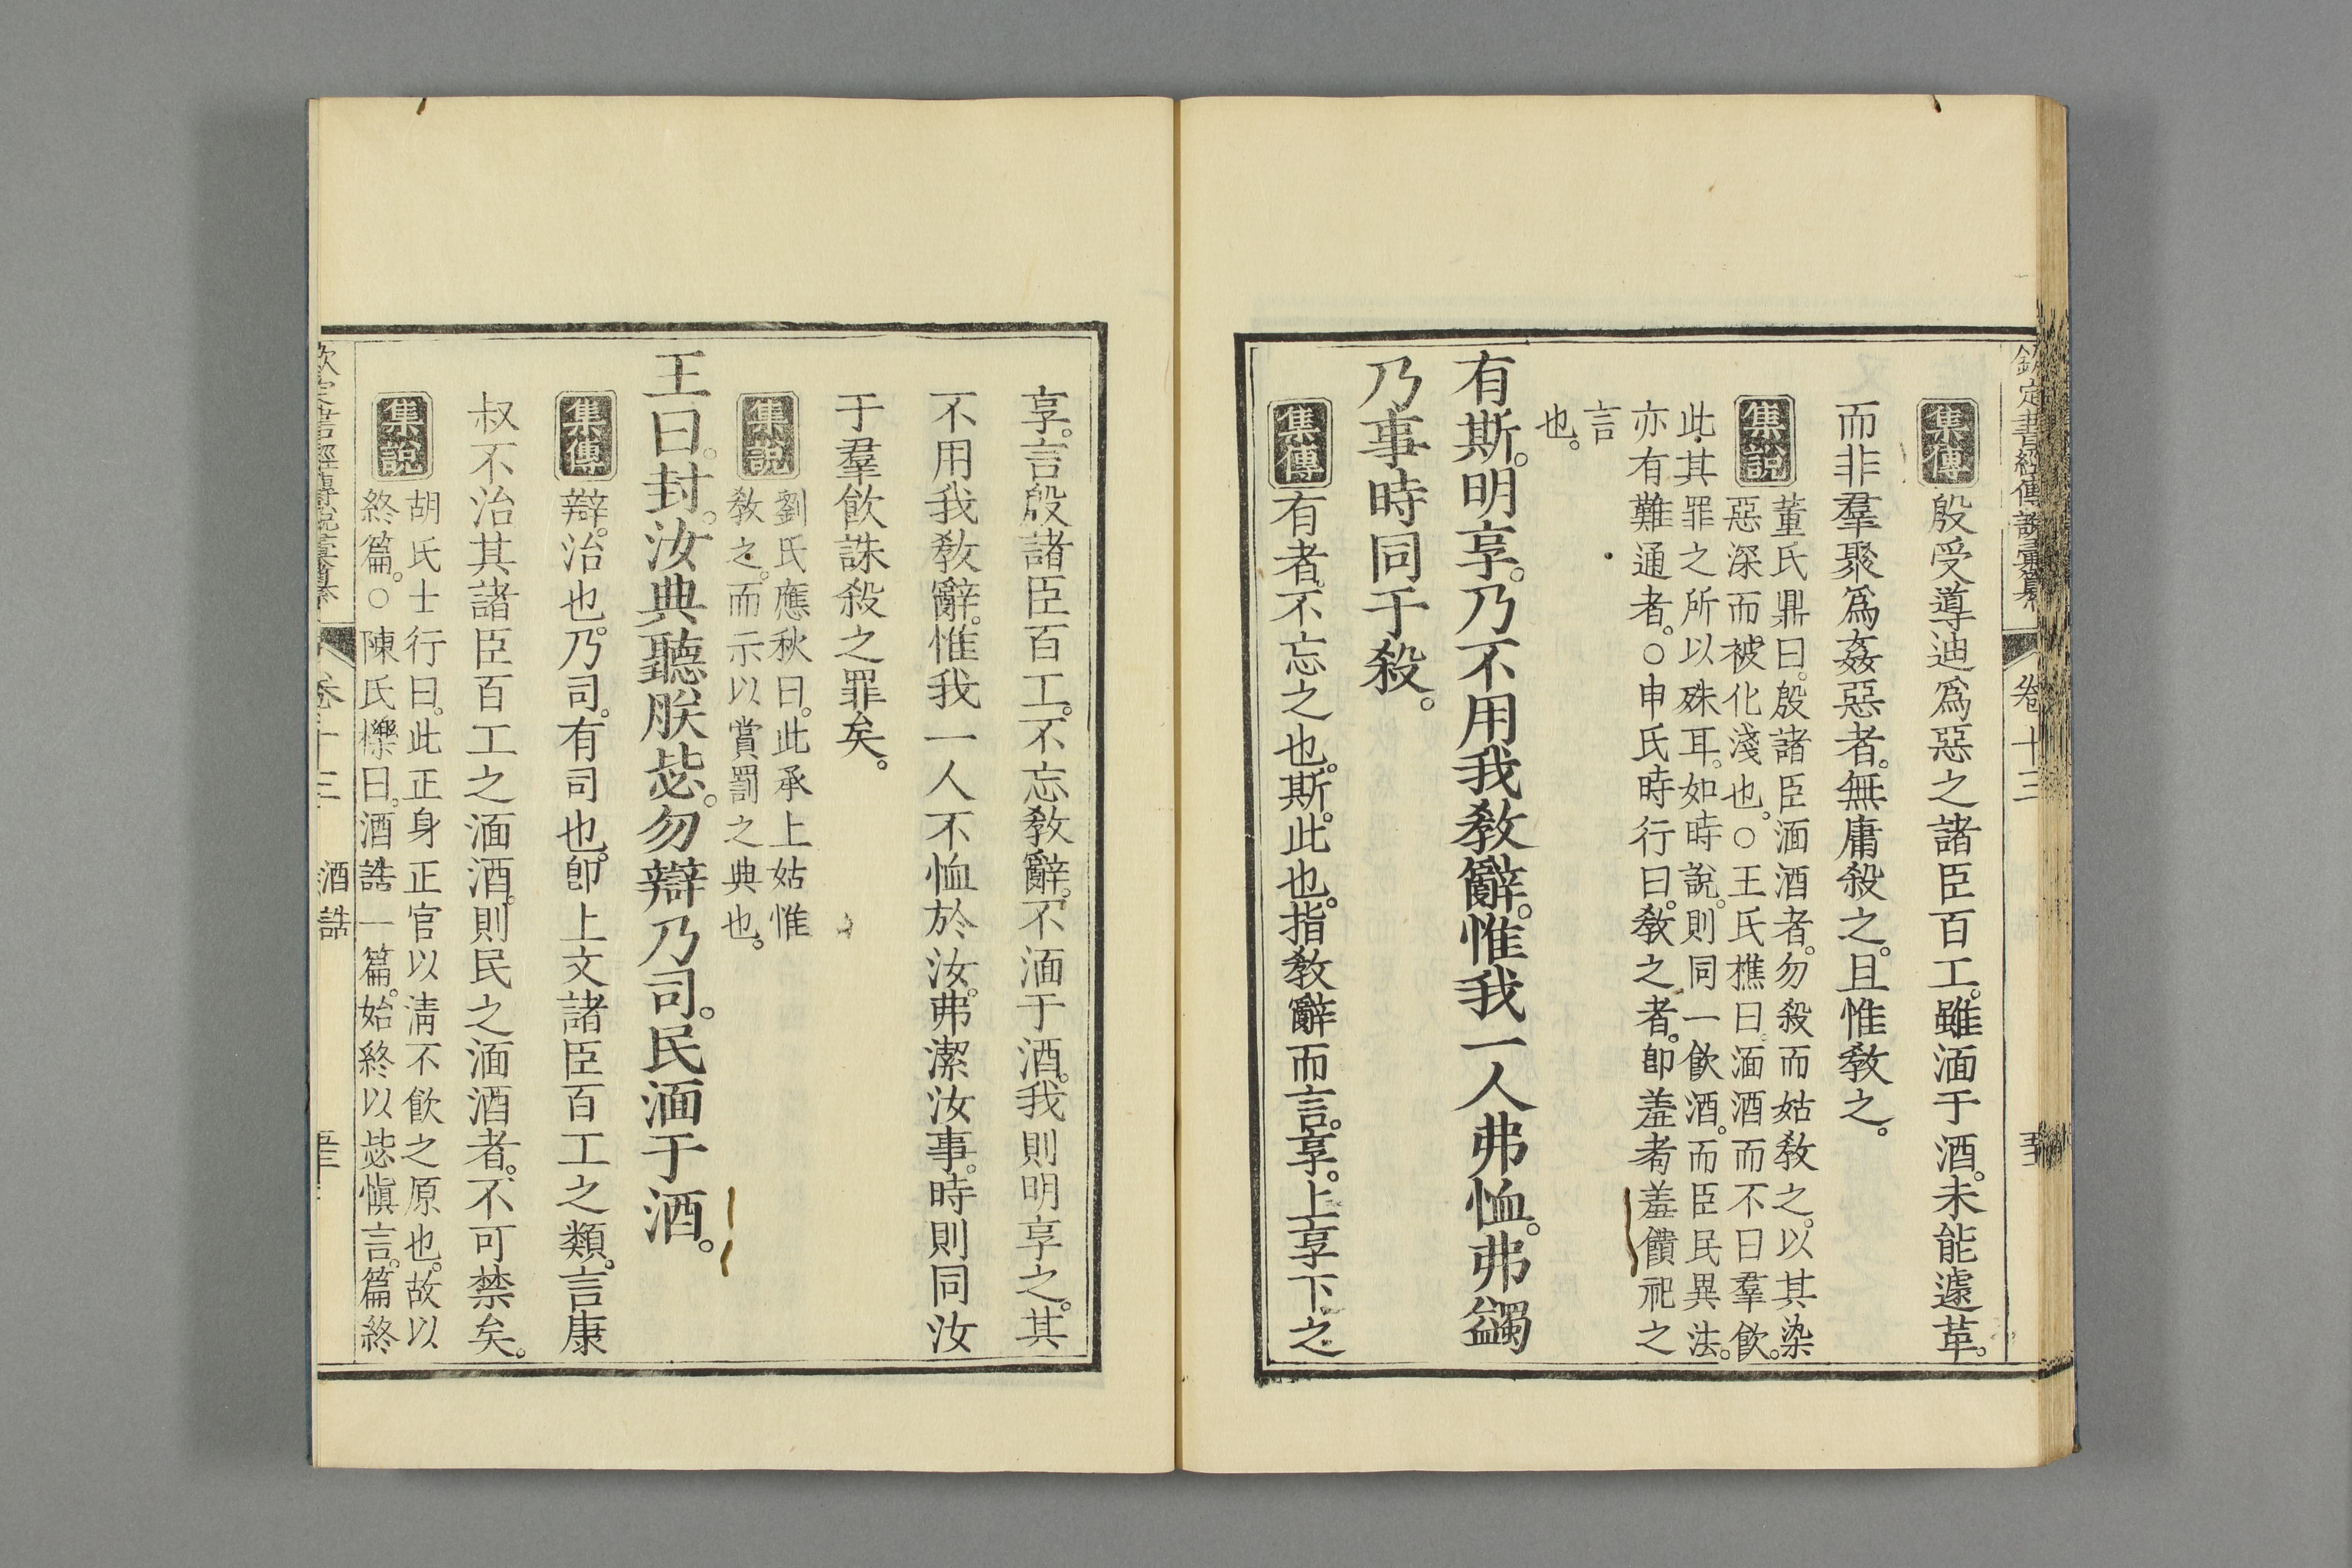 欽定書經傳說彙纂 卷十三
集傳 殷受導迪爲惡之諸臣百工。雖湎于酒。未能遽革。
而非羣聚爲姦惡者。無庸殺之。且惟敎之。
集說 董氏鼎曰。殷諸臣湎酒者。勿殺而姑敎之。以其染
惡深而被化淺也。○王氏樵曰。湎酒而不曰羣飮。
此其罪之所以殊耳。如時說。則同一飮酒。而臣民異法。
亦有難通者。○申氏時行曰。敎之者。卽羞耇羞饋祀之
言
也。
有斯。明享。乃不用我敎辭。惟我一人弗恤。弗蠲
乃事時同于殺。
集傳 有者。不忘之也。斯。此也。指敎辭而言。享。上享下之
享。言殷諸臣百工。不忘敎辭。不湎于酒。我則明享之。其
不用我敎辭。惟我一人不恤於汝。弗潔汝事。時則同汝
于羣飮誅殺之罪矣。
集說 劉氏應秋曰。此承上姑惟
敎之。而示以賞罰之典也。
王曰。封。汝典聽朕毖。勿辯乃司。民湎于酒。
集傳 辯。治也。乃司。有司也。卽上文諸臣百工之類。言康
叔不治其諸臣百工之湎酒。則民之湎酒者。不可禁矣。
集說 胡氏士行曰。此正身正官以淸不飮之原也。故以
終篇。○陳氏櫟曰。酒誥一篇。始終以毖愼言。篇終
欽定書經傳說彙纂 卷十三 酒誥